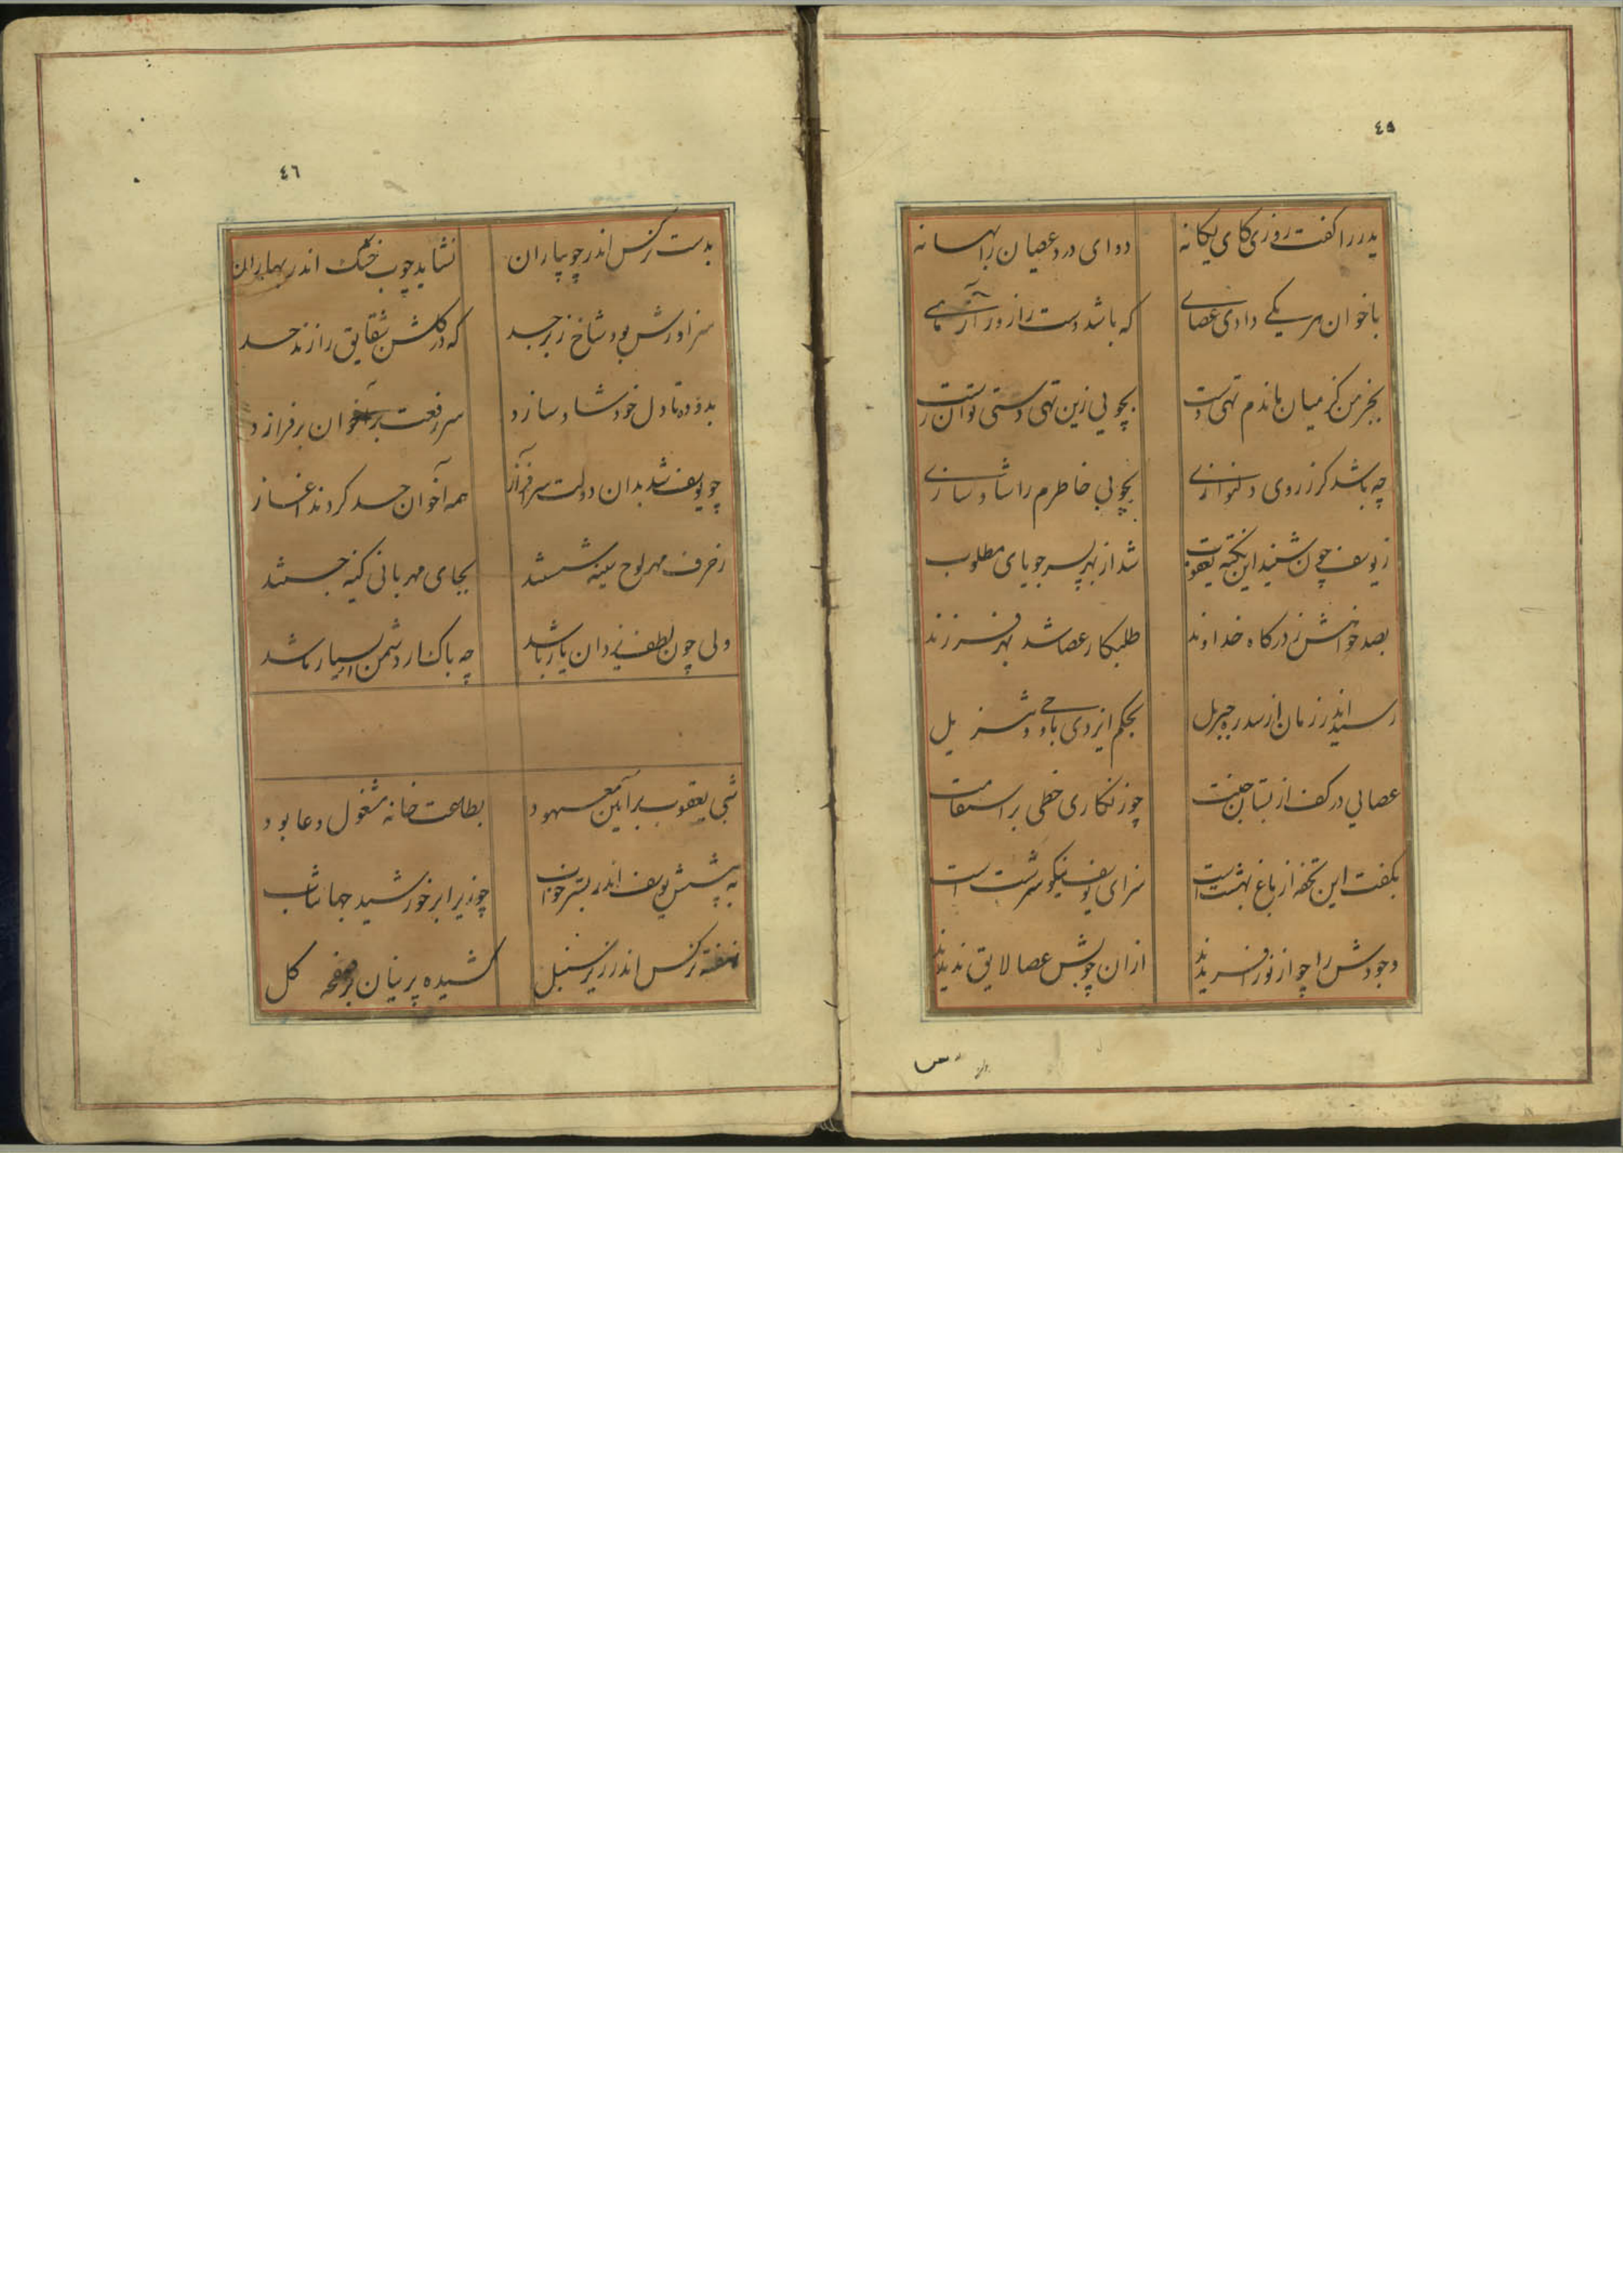 ٤٥
پدر را گفت روزی کای یکانه دوای درد عصیان را بهانه
باخوان هر یکے دادی عصاے که باشد دست را زور آزماے
بجز من کز میان ماندم تهی دست بچوبی زین تهی دستی توان رست
چه باشد کز روی دلنوازے بچوبی خاطرم را شاد سازے
ز یوسف چون شنید این نکته یعقوب شد از بهر پسر جویای مطلوب
بصد خواهش ز درکاه خداوند طلبکار عصا شد بهر فرزند
رسید اندر زمان از سدره جبریل بحکم ایزدی با وحی و تنزیل
عصایی در کف از بستان جنت چو زنکاری خطی بر استقامت
بکفت این تحفه از باغ بهشت است سزای یوسف نیکو سرشت است
وجودش را چو از نور افریدند ازان چوبش عصا لایق ندیدند
٤٦
بدست نرکس اندر جویباران نشاید چوب خشک اندر بهاران
سزاورش بود شاخ زبرجد که در کلشن شقایق را زند حد
بدو ده تا دل خود شاد سازد سر رفعت بر اخوان برفرازد
چو یوسف شد بدان دولت سرافراز همه اخوان حسد کردند اغاز
ز حرف مهر لوح سینه شستند بجای مهربانی کینه جستند
ولی چون لطف یزدان یار باشد چه باک ار دشمن بسیار باشد
شبی یعقوب بر آیین معهود بطاعت خانه مشغول دعا بود
به پیشش یوسف اندر بستر خواب چو زیر ابر خورشید جهانتاب
نهفته نرکس اندر زیر سنبل کشیده پرنیان بر صفحه کل